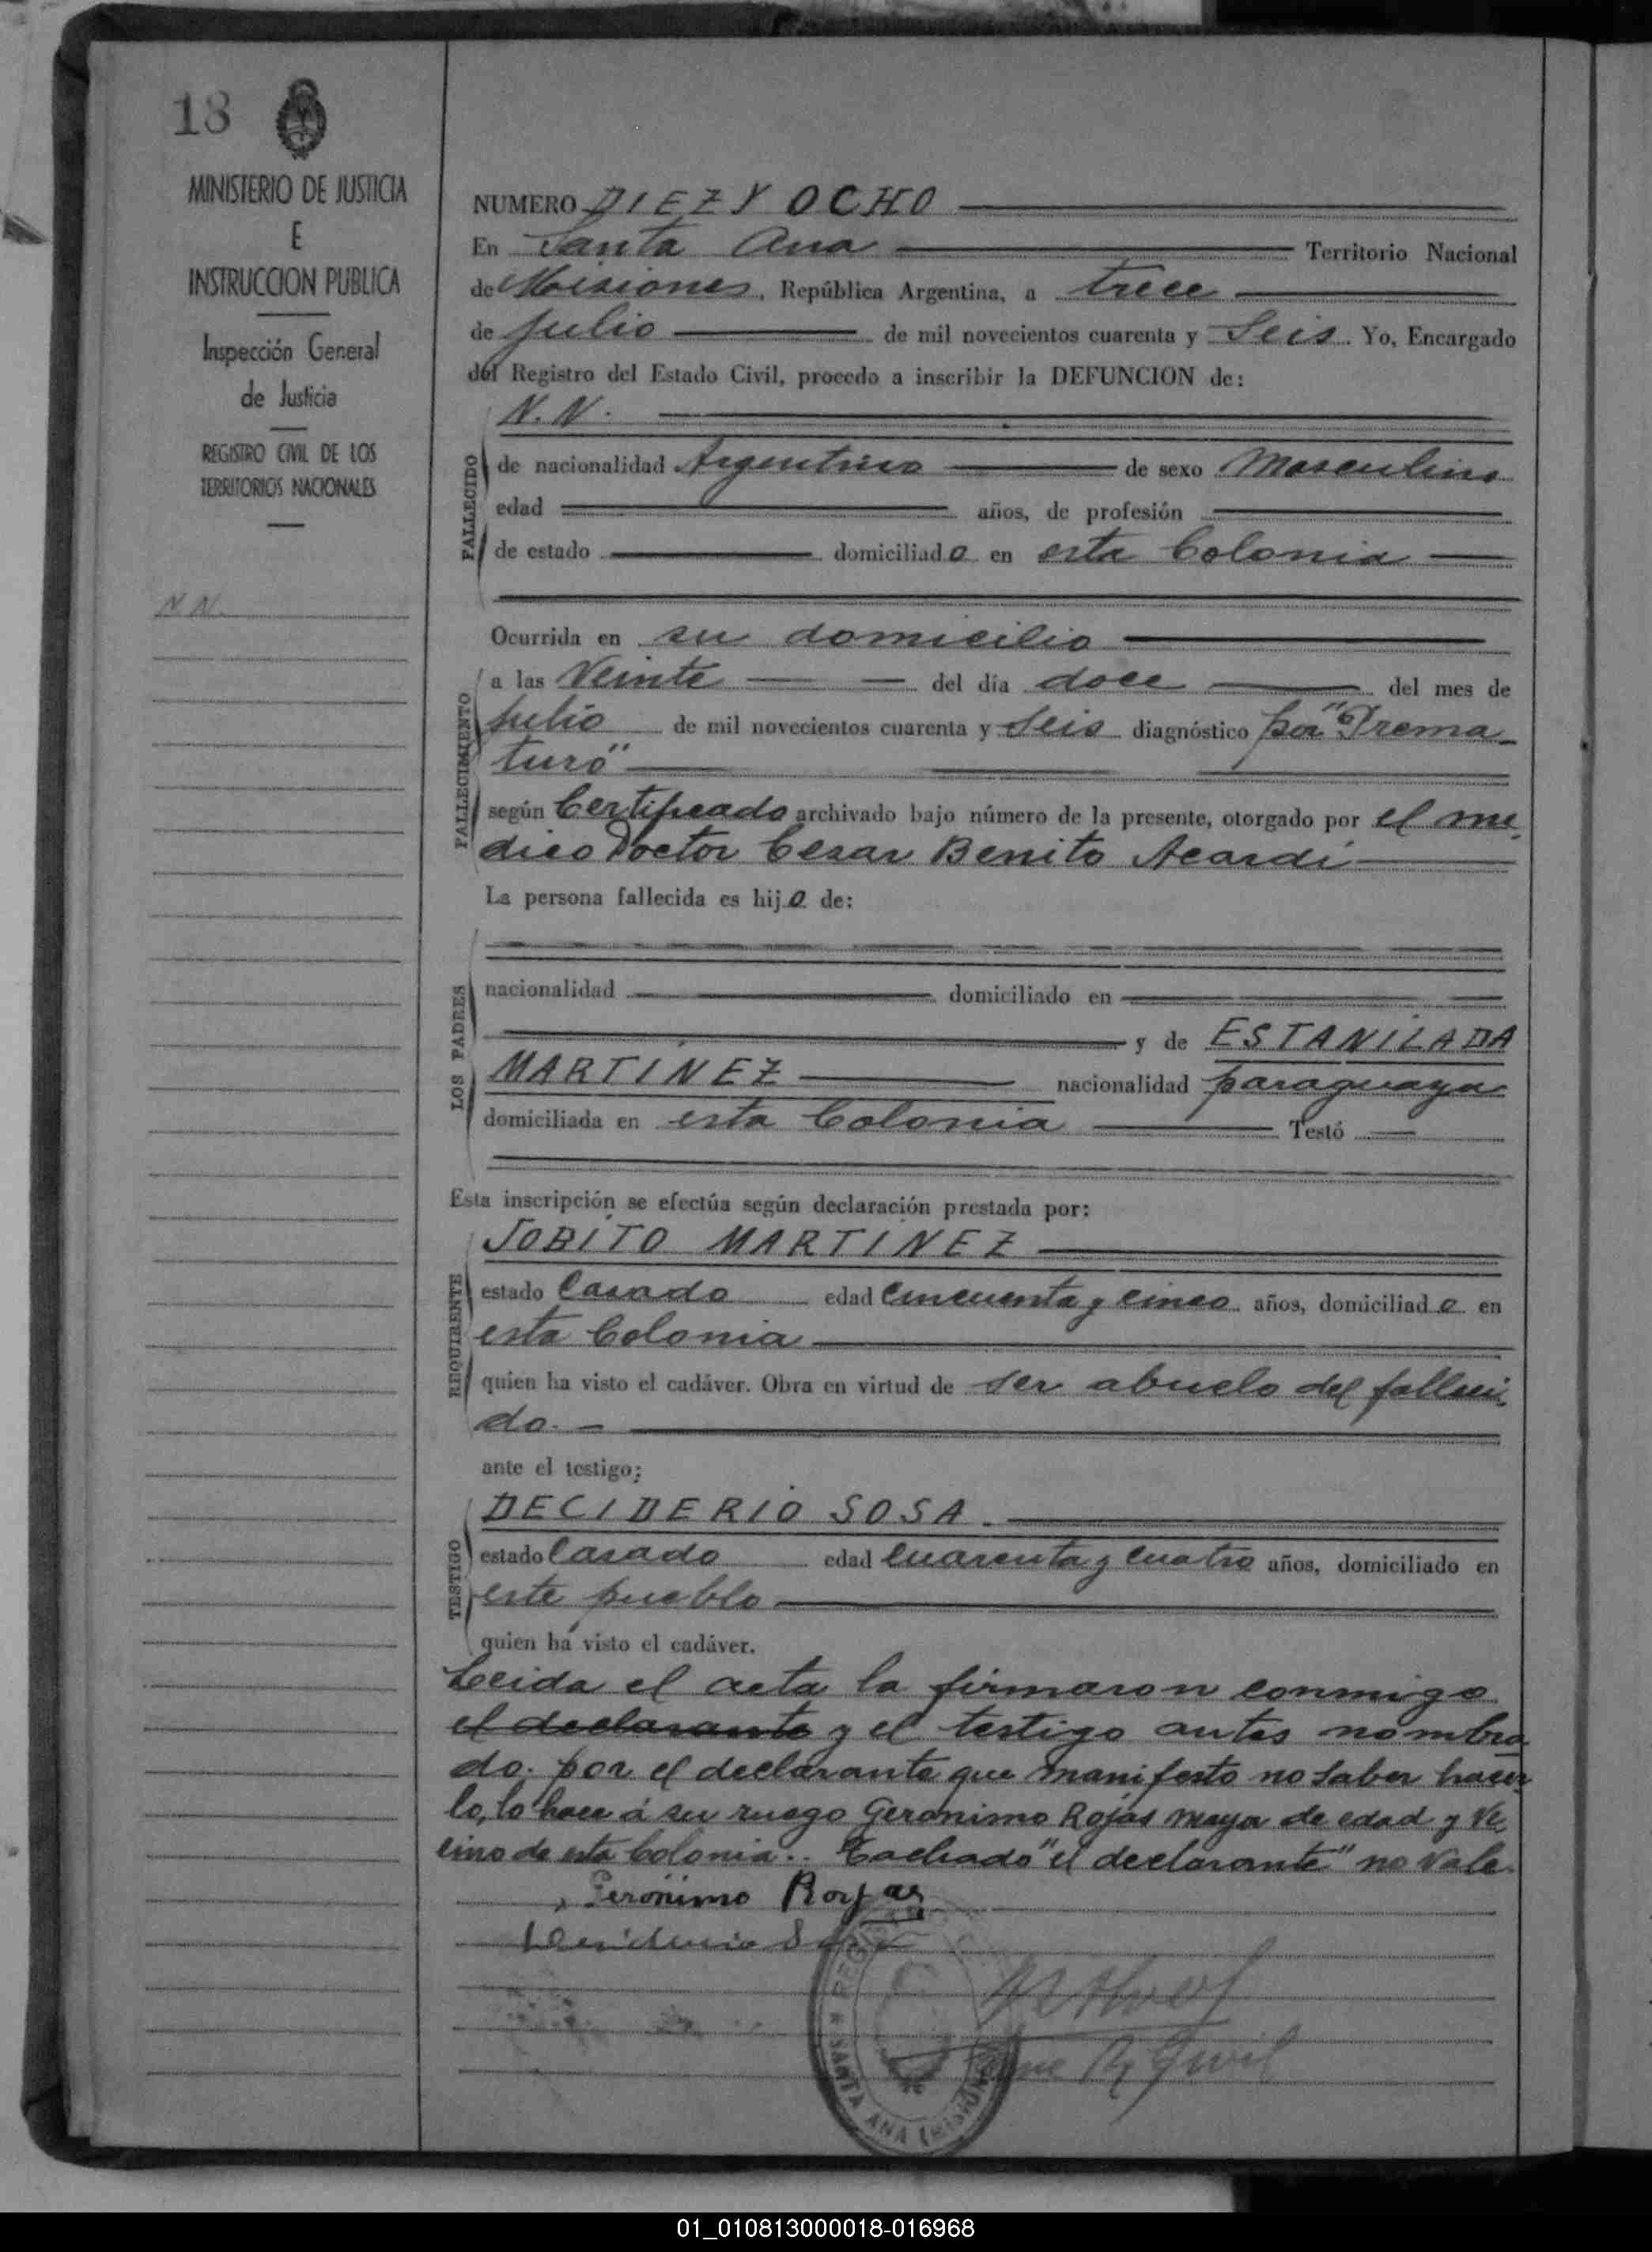 18
MINISTERIO DE JUSTICIA
E
INSTRUCCION PUBLICA
Inspección General
de Justicia
REGISTRO CIVIL DE LOS
TERRITORIOS NACIONALES
N N.
NUMERO DIEZ Y OCHO
En Santa Ana Territorio Nacional
de Misiones, República Argentina, a trece
de julio de mil novecientos cuarenta y Seis. Yo, Encargado
del Registro del Estado Civil, procedo a inscribir la DEFUNCION de:
N. N.
FALLECIDO
de nacionalidad Argentino de sexo Masculino
edad años, de profesión
de estado domiciliado en esta Colonia
Ocurrida en su domicilio
FALLECIMIENTO
a las Veinte del día doce del mes de
julio de mil novecientos cuarenta y Seis diagnóstico por "Prema-
turo"
según Certificado archivado bajo número de la presente, otorgado por el me-
dico Doctor Cesar Benito Acardi
La persona fallecida es hijo de:
LOS PADRES
nacionalidad domiciliado en
y de ESTANILADA
MARTINEZ nacionalidad paraguaya
domiciliada en esta Colonia Testó
Esta inscripción se efectúa según declaración prestada por:
REQUIRENTE
JOBITO MARTINEZ
estado Casado edad Cincuenta y cinco años, domiciliado en
esta Colonia
quien ha visto el cadáver. Obra en virtud de ser abuelo del falleci-
do.-
ante el testigo:
TESTIGO
DECIDERIO SOSA.
estado Casado edad Cuarenta y Cuatro años, domiciliado en
este pueblo
quien ha visto el cadáver.
Leida el acta la firmaron conmigo
el declarante y el testigo antes nombra-
do. por el declarante que manifesto no saber hacer-
lo, lo hace á su ruego Geronimo Rojas mayor de edad y Ve-
cino de esta Colonia.. Tachado "el declarante" no Vale.
Geronimo Rojas
SANTA ANA (MISIONES)
01_010813000018-016968